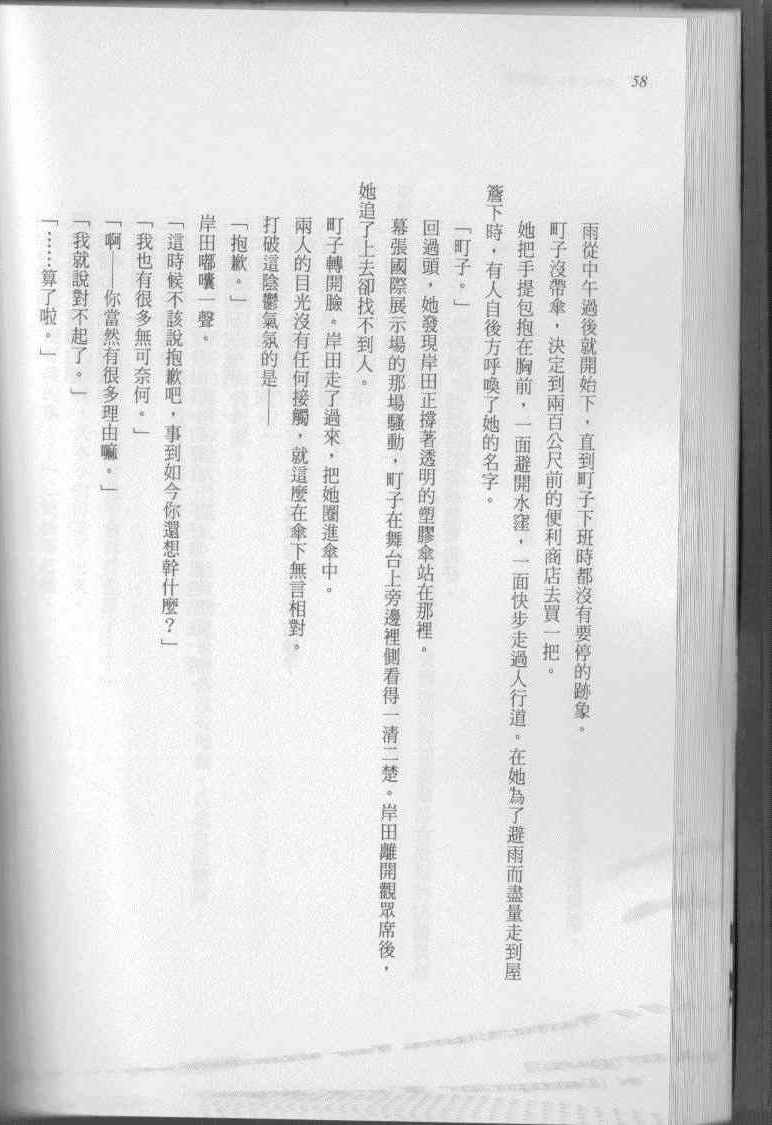 58
雨從中午過後就開始下，直到町子下班時都沒有要停的跡象。
町子沒帶傘，決定到兩百公尺前的便利商店去買一把。
她把手提包抱在胸前，一面避開水窪，一面快步走過人行道。在她為了避雨而盡量走到屋
簷下時，有人自後方呼喚了她的名字。
「町子。」
回過頭，她發現岸田正撐著透明的塑膠傘站在那裡。
幕張國際展示場的那場騷動，町子在舞台上旁邊裡側看得一清二楚。岸田離開觀眾席後，
她追了上去卻找不到人。
町子轉開臉。岸田走了過來，把她圈進傘中。
兩人的目光沒有任何接觸，就這麼在傘下無言相對。
打破這陰鬱氣氛的是——
「抱歉。」
岸田嘟囔一聲。
「這時候不該說抱歉吧，事到如今你還想幹什麼？」
「我也有很多無可奈何。」
「啊——你當然有很多理由嘛。」
「我就說對不起了。」
「……算了啦。」